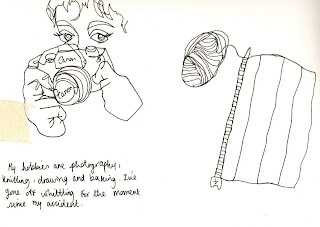 Canon
Canon
My hobbies are photography,
Knitting, drawing and baking. I've
gone off whittling for the moment
since my accident.